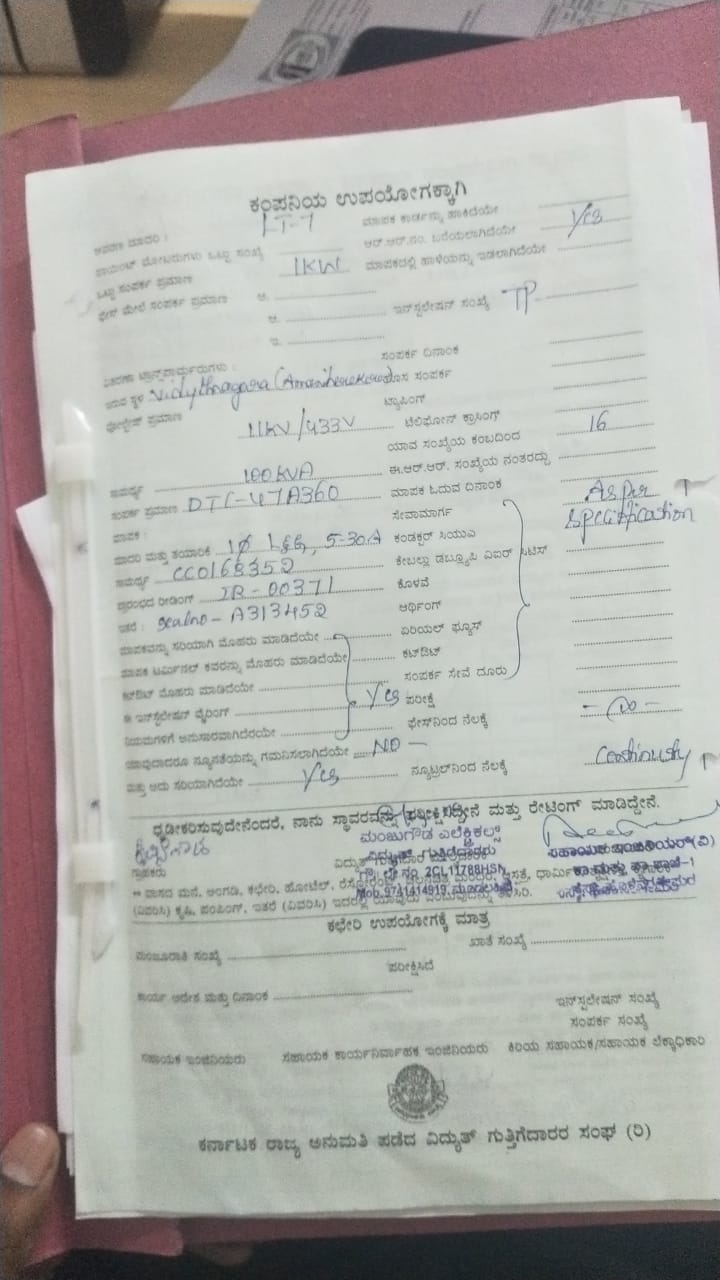 ಕಂಪನಿಯ ಉಪಯೋಗಕ್ಕಾಗಿ
ಆವರಣ ಮಾದರಿ : LT-7 ಮಾಪಕ ಕಾರ್ಡನ್ನು ಹಾಕಿದೆಯೇ
ಪಾಯಿಂಟ್ ಮೋಟರುಗಳು ಒಟ್ಟು ಸಂಖ್ಯೆ ಆರ್.ಆರ್.ನಂ. ಬರೆಯಲಾಗಿದೆಯೇ Yes
ಒಟ್ಟು ಸಂಪರ್ಕ ಪ್ರಮಾಣ 1KW ಮಾಪಕದಲ್ಲಿ ಹಾಳೆಯನ್ನು ಇಡಲಾಗಿದೆಯೇ
ಫೇಸ್ ಮೇಲೆ ಸಂಪರ್ಕ ಪ್ರಮಾಣ ಅ.
ಆ. ಇನ್‌ಸ್ಟಲೇಷನ್ ಸಂಖ್ಯೆ TP
ಇ.
ಸಂಪರ್ಕ ದಿನಾಂಕ
ವಿತರಣಾ ಟ್ರಾನ್ಸ್‌ಫಾರ್ಮರುಗಳು :
ಇರುವ ಸ್ಥಳ ಸಂಪರ್ಕ
ವೋಲ್ಟೇಜ್ ಪ್ರಮಾಣ 11KV/433V ಟ್ಯಾಪಿಂಗ್
ಟೆಲಿಫೋನ್ ಕ್ರಾಸಿಂಗ್
ಯಾವ ಸಂಖ್ಯೆಯ ಕಂಬದಿಂದ 16
ಸಾಮರ್ಥ್ಯ 100KVA ಈ.ಆರ್.ಆರ್. ಸಂಖ್ಯೆಯ ನಂತರದ್ದು
ಸಂಪರ್ಕ ಪ್ರಮಾಣ DTC-47A360 ಮಾಪಕ ಓದುವ ದಿನಾಂಕ
ಮಾಪಕ : ಸೇವಾಮಾರ್ಗ As per specification
ಮಾದರಿ ಮತ್ತು ತಯಾರಿಕೆ 1φ L&G, 5-30A ಕಂಡಕ್ಟರ್ ಸಿಯುವಿ
ಸಾಮರ್ಥ್ಯ CC0168352 ಕೇಬಲ್ಲು ಡಬ್ಲ್ಯೂಪಿ ವಿಐಆರ್
ಪ್ರಾರಂಭದ ರೀಡಿಂಗ್ IR-00371 ಕೊಳವೆ
ಇತರೆ : seal no - A313452 ಅರ್ಥಿಂಗ್
ಮಾಪಕವನ್ನು ಸರಿಯಾಗಿ ಮೊಹರು ಮಾಡಿದೆಯೇ ಏರಿಯಲ್ ಫ್ಯೂಸ್
ಮಾಪಕ ಟರ್ಮಿನಲ್ ಕವರನ್ನು ಮೊಹರು ಮಾಡಿದೆಯೇ ಕಟ್‌ಔಟ್
ಕಟ್‌ಔಟ್ ಮೊಹರು ಮಾಡಿದೆಯೇ ಸಂಪರ್ಕ ಸೇವೆ ದೂರು
ಈ ಇನ್‌ಸ್ಟಲೇಷನ್ ವೈರಿಂಗ್ Yes ಪರೀಕ್ಷೆ
ನಿಯಮಗಳಿಗೆ ಅನುಸಾರವಾಗಿದೆಯೇ ಫೇಸ್‌ನಿಂದ ನೆಲಕ್ಕೆ
ಯಾವುದಾದರೂ ನ್ಯೂನತೆಯನ್ನು ಗಮನಿಸಲಾಗಿದೆಯೇ NO -
ಮತ್ತು ಅದು ಸರಿಯಾಗಿದೆಯೇ Yes ನ್ಯೂಟ್ರಲ್‌ನಿಂದ ನೆಲಕ್ಕೆ
ಧೃಡೀಕರಿಸುವುದೇನೆಂದರೆ, ನಾನು ಸ್ಥಾವರವನ್ನು ಪರೀಕ್ಷಿಸಿದ್ದೇನೆ ಮತ್ತು ರೇಟಿಂಗ್ ಮಾಡಿದ್ದೇನೆ.
ಮಂಜುಗೌಡ ಎಲೆಕ್ಟ್ರಿಕಲ್ಸ್
ವಿದ್ಯುತ್ ಗುತ್ತಿಗೆದಾರರು ಸಹಾಯಕ ಇಂಜಿನಿಯರ್ (ವಿ)
ಗ್ರಾಹಕರು 2CL11788HSN
Mob. 9741414919
** ವಾಸದ ಮನೆ, ಅಂಗಡಿ, ಕಛೇರಿ, ಹೋಟೆಲ್,
(ವಿವರಿಸಿ) ಕೃಷಿ, ಪಂಪಿಂಗ್, ಇತರೆ (ವಿವರಿಸಿ) ಇದರಲ್ಲಿ
ಕಛೇರಿ ಉಪಯೋಗಕ್ಕೆ ಮಾತ್ರ
ಮಂಜೂರಾತಿ ಸಂಖ್ಯೆ ಖಾತೆ ಸಂಖ್ಯೆ
ಪರೀಕ್ಷಿಸಿದೆ
ಕಾರ್ಯ ಆದೇಶ ಮತ್ತು ದಿನಾಂಕ
ಇನ್‌ಸ್ಟಲೇಷನ್ ಸಂಖ್ಯೆ
ಸಂಪರ್ಕ ಸಂಖ್ಯೆ
ಸಹಾಯಕ ಇಂಜಿನಿಯರು ಸಹಾಯಕ ಕಾರ್ಯನಿರ್ವಾಹಕ ಇಂಜಿನಿಯರು ಕಿರಿಯ ಸಹಾಯಕ/ಸಹಾಯಕ ಲೆಕ್ಕಾಧಿಕಾರಿ
ಕರ್ನಾಟಕ ರಾಜ್ಯ ಅನುಮತಿ ಪಡೆದ ವಿದ್ಯುತ್ ಗುತ್ತಿಗೆದಾರರ ಸಂಘ (ರಿ)